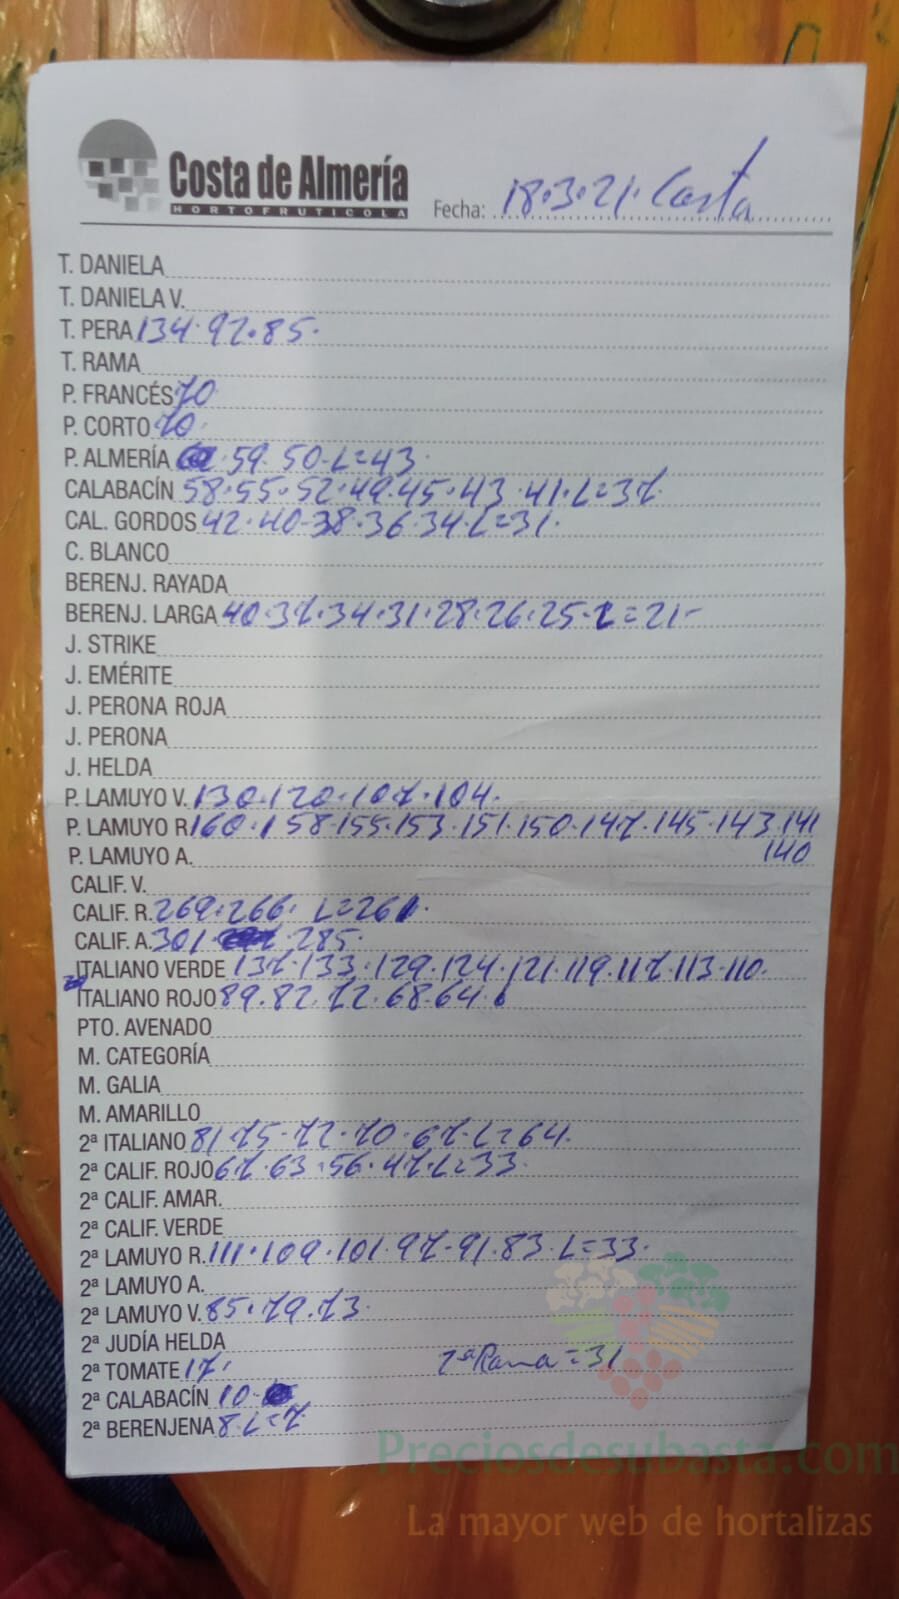 Costa de Almería
HORTOFRUTICOLA
Fecha: 18·3·21· Costa
T. DANIELA
T. DANIELA V.
T. PERA 134·92·85·
T. RAMA
P. FRANCÉS 70
P. CORTO 70·
P. ALMERÍA 59·50·L=43·
CALABACÍN 58·55·52·49·45·43·41·L=37
CAL. GORDOS 42·40·38·36·34·L=31·
C. BLANCO
BERENJ. RAYADA
BERENJ. LARGA 40·37·34·31·28·26·25·L=21-
J. STRIKE
J. EMÉRITE
J. PERONA ROJA
J. PERONA
J. HELDA
P. LAMUYO V. 130·120·107·104·
P. LAMUYO R 160·158·155·153·151·150·147·145·143·141
P. LAMUYO A. 140
CALIF. V.
CALIF. R. 269·266· L=261·
CALIF. A. 301· 285·
ITALIANO VERDE 137·133·129·124·121·119·117·113·110·
ITALIANO ROJO 89·82·72·68·64·
PTO. AVENADO
M. CATEGORÍA
M. GALIA
M. AMARILLO
2ª ITALIANO 81·75·72·70·67·L=64·
2ª CALIF. ROJO 67·63·56·47·L=33·
2ª CALIF. AMAR.
2ª CALIF. VERDE
2ª LAMUYO R. 111·109·101·97·91·83·L=33·
2ª LAMUYO A.
2ª LAMUYO V. 85·79·73·
2ª JUDÍA HELDA
2ª TOMATE 17· 2ª Rama=31
2ª CALABACÍN 10·
2ª BERENJENA 8·L=7
Preciosdesubasta.com
La mayor web de hortalizas